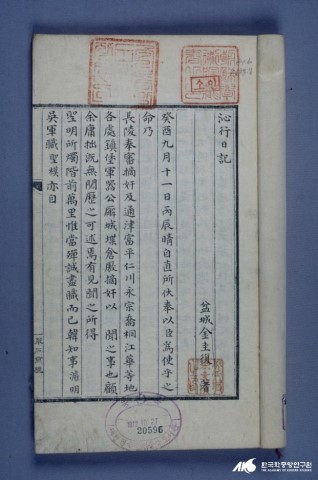 沁行日記
盆城金圭復 著
癸酉九月十一日丙辰晴自直所伏奉以臣爲使乎之
命乃
長陵奉審摘奸及通津富平仁川永宗喬桐江華等地
各處鎭堡軍器公廨城堞倉廒摘奸以 聞之事也顧
余庸拙旣無閱歷之可述焉有見聞之所得
聖明所燭階前萬里惟當殫誠盡職而已韓知事
吳軍職聖模亦自
20596
한국학중앙연구원
THE ACADEMY OF KOREAN STUDIES